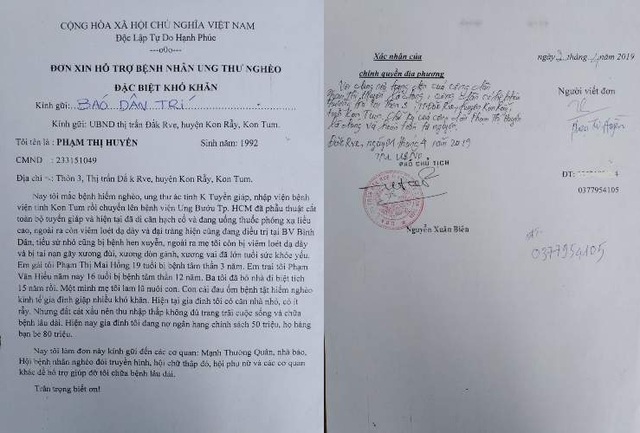 CỘNG HÒA XÃ HỘI CHỦ NGHĨA VIỆT NAM
Độc Lập Tự Do Hạnh Phúc
---o0o---
ĐƠN XIN HỖ TRỢ BỆNH NHÂN UNG THƯ NGHÈO
ĐẶC BIỆT KHÓ KHĂN
Kính gửi: BÁO DÂN TRÍ
Kính gửi: UBND thị trấn Đắk Rve, huyện Kon Rẫy, Kon Tum.
Tôi tên là : PHẠM THỊ HUYỀN Sinh năm: 1992
CMND : 233151049
Địa chỉ : Thôn 3, Thị trấn Đắ k Rve, huyện Kon Rẫy, Kon Tum.
Nay tôi mắc bệnh hiểm nghèo, ung thư ác tính K Tuyến giáp, nhập viện bệnh
viện tỉnh Kon Tum rồi chuyển lên bệnh viện Ung Bướu Tp. HCM đã phẫu thuật cắt
toàn bộ tuyến giáp và hiện tại đã di căn hạch cổ và đang uống thuốc phóng xạ liều
cao, ngoài ra còn viêm loét dạ dày và đại tràng hiện cũng đang điều trị tại BV Bình
Dân, tiểu sử nhỏ cũng bị bệnh hen xuyễn, ngoài ra mẹ tôi còn bị viêm loét dạ dày và
bị tai nạn gãy xương đùi, xương đòn gánh, xương vai đã lớn tuổi sức khỏe yếu.
Em gái tôi Phạm Thị Mai Hồng 19 tuổi bị bệnh tâm thần 3 năm. Em trai tôi Phạm
Văn Hiếu năm nay 16 tuổi bị bệnh tâm thần 12 năm. Ba tôi đã bỏ nhà đi biệt tích
15 năm rồi. Một mình mẹ tôi lam lũ nuôi con. Con cái đau ốm bệnh tật hiểm nghèo
kinh tế gia đình gặp nhiều khó khăn. Hiện tại gia đình tôi có căn nhà nhỏ, có ít
rẫy. Nhưng đất cát xấu nên thu nhập thấp không đủ trang trải cuộc sống và chữa
bệnh lâu dài. Hiện nay gia đình tôi đang nợ ngân hàng chính sách 50 triệu, họ hàng
bạn bè 80 triệu.
Nay tôi làm đơn này kính gửi đến các cơ quan: Mạnh Thường Quân, nhà báo,
Hội bệnh nhân nghèo đài truyền hình, hội chữ thập đỏ, hội phụ nữ và các cơ quan
khác để hỗ trợ giúp đỡ tôi chữa bệnh lâu dài.
Trân trọng biết ơn!
Xác nhận của
chính quyền địa phương
ngày 2 tháng 4 năm 2019
Người viết đơn
Phạm Thị Huyền
Đắk Rve, ngày 01 tháng 4 năm 2019
TM UBND
PHÓ CHỦ TỊCH
Nguyễn Xuân Biên
ĐT:
0377954105
ĐT:
0377954105